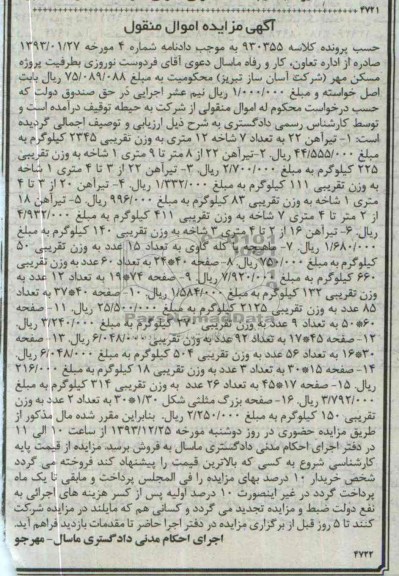 ۴۷۲۱
آگهی مزایده اموال منقول
حسب پرونده کلاسه ۹۳۰۳۵۵ به موجب دادنامه شماره ۴ مورخه ۱۳۹۳/۰۱/۲۷
صادره از اداره تعاون، کار و رفاه ماسال دعوی آقای فردوست نوروزی بطرفیت پروژه
مسکن مهر (شرکت آسان ساز تبریز) محکومیت به مبلغ ۷۵/۰۸۹/۰۸۸ ریال بابت
اصل خواسته و مبلغ ۱/۰۰۰/۰۰۰ ریال نیم عشر اجرایی در حق صندوق دولت که
حسب درخواست محکوم له اموال منقولی از شرکت به حیطه توقیف درآمده است و
توسط کارشناس رسمی دادگستری به شرح ذیل ارزیابی و توصیف اجمالی گردیده
است: ۱- تیرآهن ۲۲ به تعداد ۷ شاخه ۱۲ متری به وزن تقریبی ۲۳۴۵ کیلوگرم به
مبلغ ۴۴/۵۵۵/۰۰۰ ریال. ۲-تیرآهن ۲۲ از ۸ متر تا ۹ متری ۱ شاخه به وزن تقریبی
۲۲۵ کیلوگرم به مبلغ ۲/۷۰۰/۰۰۰ ریال. ۳- تیرآهن ۲۲ از ۳ تا ۴ متری ۱ شاخه
به وزن تقریبی ۱۱۱ کیلوگرم به مبلغ ۱/۳۳۲/۰۰۰ ریال. ۴- تیرآهن ۲۰ از ۳ تا ۴
متری ۱ شاخه به وزن تقریبی ۸۳ کیلوگرم به مبلغ ۹۹۶/۰۰۰ ریال. ۵- تیرآهن ۱۸
از ۲ متر تا ۴ متری ۷ شاخه به وزن تقریبی ۴۱۱ کیلوگرم به مبلغ ۴/۹۳۲/۰۰۰
ریال. ۶- تیرآهن ۱۶ از متری ۳ شاخه به وزن تقریبی ۱۴۰ کیلوگرم به مبلغ
۱/۶۸۰/۰۰۰ ریال. ۷- کله گاوی به تعداد ۱۵ عدد به وزن تقریبی ۵۰
کیلوگرم به مبلغ ۷۵۰/۰۰۰ ریال. ۸- صفحه ۴۰*۲۴ به تعداد ۶۰ عدد به وزن تقریبی
۶۶۰ کیلوگرم به مبلغ ۷/۹۲۰/۰۰۰ ریال. ۹- صفحه ۷۴*۱۹ به تعداد ۱۲ عدد به
وزن تقریبی ۱۳۲ کیلوگرم به مبلغ ۱/۵۸۴/۰۰۰ ریال. ۱۰- صفحه ۴۰*۳۷ به تعداد
۸۵ عدد به وزن تقریبی ۲۱۲۵ کیلوگرم به مبلغ ۲۵/۵۰۰/۰۰۰ ریال. ۱۱- صفحه
۶۰*۵۰ به تعداد ۹ عدد به وزن تقریبی کیلوگرم به مبلغ ۳/۲۴۰/۰۰۰ ریال.
۱۲- صفحه ۴۵*۱۷ به تعداد ۹۲ عدد به وزن تقریبی کیلوگرم به مبلغ ۶/۰۴۸/۰۰۰ ریال. ۱۳- صفحه
۳۰*۱۶ به تعداد ۵۶ عدد به وزن تقریبی ۵۰۴ کیلوگرم به مبلغ ۶/۰۴۸/۰۰۰ ریال.
۱۴- صفحه ۱۵*۳۰ به تعداد ۳ عدد به وزن تقریبی ۱۸ کیلوگرم به مبلغ ۲۱۶/۰۰۰
ریال. ۱۵- صفحه ۱۷*۴۵ به تعداد ۲۶ عدد به وزن تقریبی ۳۱۴ کیلوگرم به مبلغ
۳/۷۹۲/۰۰۰ ریال. ۱۶- صفحه بزرگ مثلثی شکل ۱/۳۰*۳۰ به تعداد ۲ عدد به وزن
تقریبی ۱۵۰ کیلوگرم به مبلغ ۲/۲۵۰/۰۰۰ ریال. بنابراین مقرر شده مال مذکور از
طریق مزایده حضوری در روز دوشنبه مورخه ۱۳۹۳/۱۲/۲۵ از ساعت ۱۰ الی ۱۱
در دفتر اجرای احکام مدنی دادگستری ماسال به فروش برسد. مزایده از قیمت پایه
کارشناسی شروع به کسی که بالاترین قیمت را پیشنهاد کند فروخته می گردد
شخص خریدار ۱۰ درصد بهای مزایده را فی المجلس پرداخت و مابقی تا یک ماه
پرداخت گردد در غیر اینصورت ۱۰ درصد اولیه پس از کسر هزینه های اجرائی به
نفع دولت ضبط و مزایده تجدید می گردد و کسانی هم که مایلند در مزایده شرکت
کنند تا ۵ روز قبل از برگزاری مزایده در دفتر اجرا حاضر تا مقدمات بازدید فراهم آید.
اجرای احکام مدنی دادگستری ماسال - مهرجو
۴۷۲۲